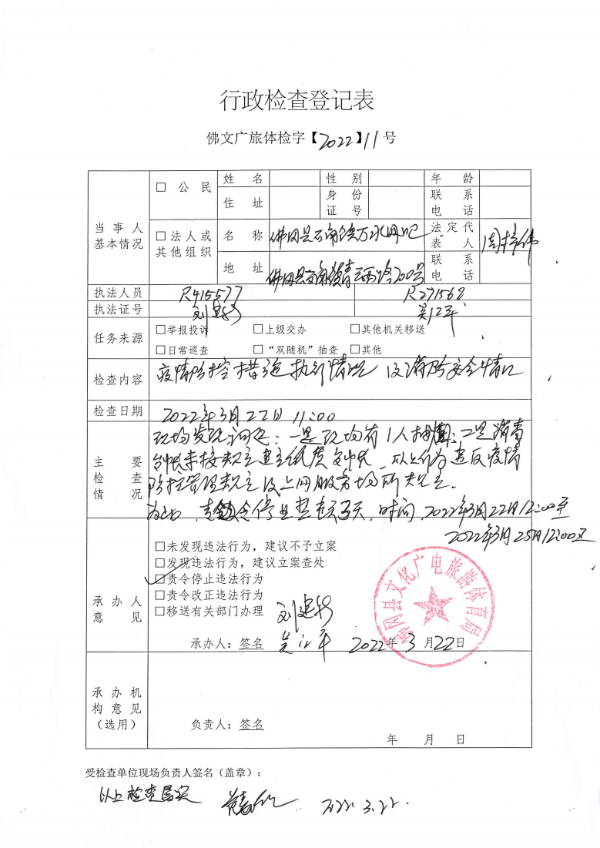 行政检查登记表
佛文广旅体检字【2022】11号
当事人基本情况
□公民
姓名
性别
年龄
住址
身份证号
联系电话
□法人或其他组织
名称
佛冈县石角镇万水网吧
法定代表人
地址
联系电话
执法人员
R415577
R271568
执法证号
刘建
吴
任务来源
□举报投诉
□上级交办
□其他机关移送
□日常巡查
□“双随机”抽查
□其他
检查内容
疫情防控措施执行情况及消防安全情况
检查日期
2022年3月22日11:00
主要检查情况
现场发现问题:一是现场有1人抽烟;二是消毒
台帐未按规定建立纸质台帐,以上行为违反疫情
防控管理规定及上网服务场所规定。
为此,责令停业整顿3天,时间,2022年3月22日12:00至
2022年3月25日12:00止
承办人意见
□未发现违法行为,建议不予立案
□发现违法行为,建议立案查处
□责令停止违法行为
□责令改正违法行为
□移送有关部门办理
刘建
吴
承办人:签名
2022年3月22日
佛冈县文化广电旅游体育局
承办机构意见(选用)
负责人:签名
年 月 日
受检查单位现场负责人签名(盖章):
以上检查属实
2022.3.22